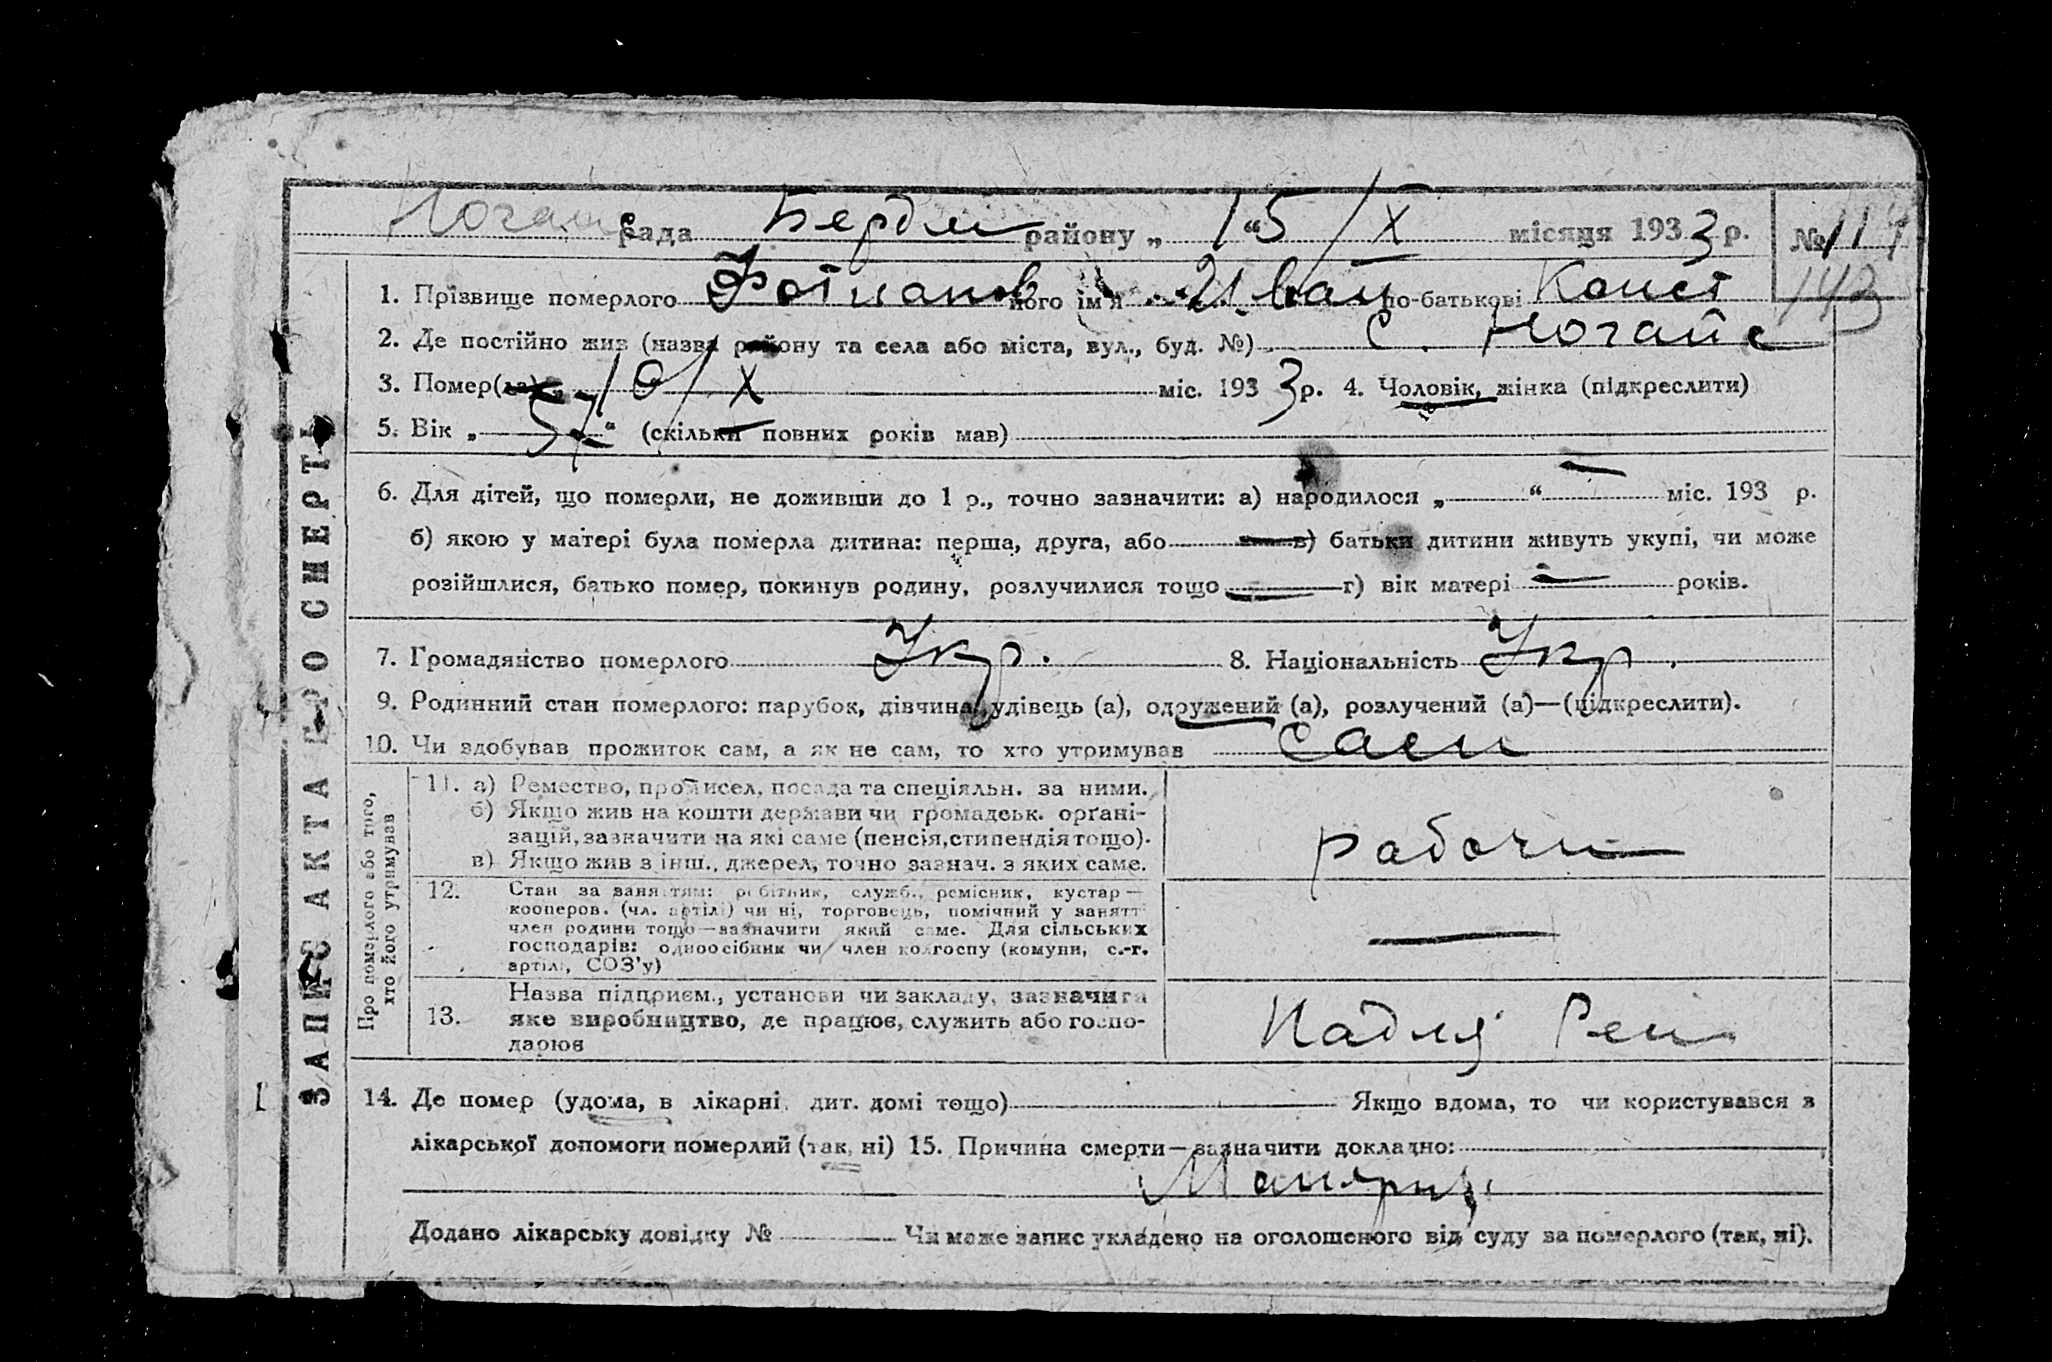 Ногайс рада Бердян району „ 15/X “ місяця 1933 р. № 117
143
1. Прізвище померлого його ім'я Иван по-батькові Конст
2. Де постійно жив (назва району та села або міста, вул., буд. №) с. Ногайс
3. Помер(ла) „ 10/X міс. 1933 р. 4. Чоловік, жінка (підкреслити)
5. Вік „ 57 “ (скільки повних років мав)
6. Для дітей, що померли, не доживши до 1 р., точно зазначити: а) народилося „ — “ міс. 193 р.
б) якою у матері була померла дитина: перша, друга, або — в) батьки дитини живуть укупі, чи може
розійшлися, батько помер, покинув родину, розлучилися тощо — г) вік матері — років.
7. Громадянство померлого Укр. 8. Національність Укр.
9. Родинний стан померлого: парубок, дівчина, удівець (а), одружений (а), розлучений (а)—(підкреслити).
10. Чи здобував прожиток сам, а як не сам, то хто утримував сам
ЗАПИС АКТА ПРО СМЕРТЬ
Про померлого або того,
хто його утримував
11. а) Ремество, промисел, посада та спеціяльн. за ними.
б) Якщо жив на кошти держави чи громадськ. органі-
зацій, зазначити на які саме (пенсія, стипендія тощо).
в) Якщо жив з інш. джерел, точно зазнач. з яких саме.
рабочи
12. Стан за заняттям: робітник, служб., ремісник, кустар —
кооперов. (чл. артілі) чи ні, торговець, помічний у занятт
член родини тощо—зазначити який саме. Для сільських
господарів: одноосібник чи член колгоспу (комуни, с.-г.
артілі, СОЗ'у)
—
13. Назва підприєм., установи чи закладу, зазначити
яке виробництво, де працює, служить або госпо-
дарює
14. Де помер (удома, в лікарні, дит. домі тощо) Якщо вдома, то чи користувався з
лікарської допомоги померлий (так, ні) 15. Причина смерти—зазначити докладно:
Додано лікарську довідку № Чи може запис укладено на оголошеного від суду за померлого (так, ні).